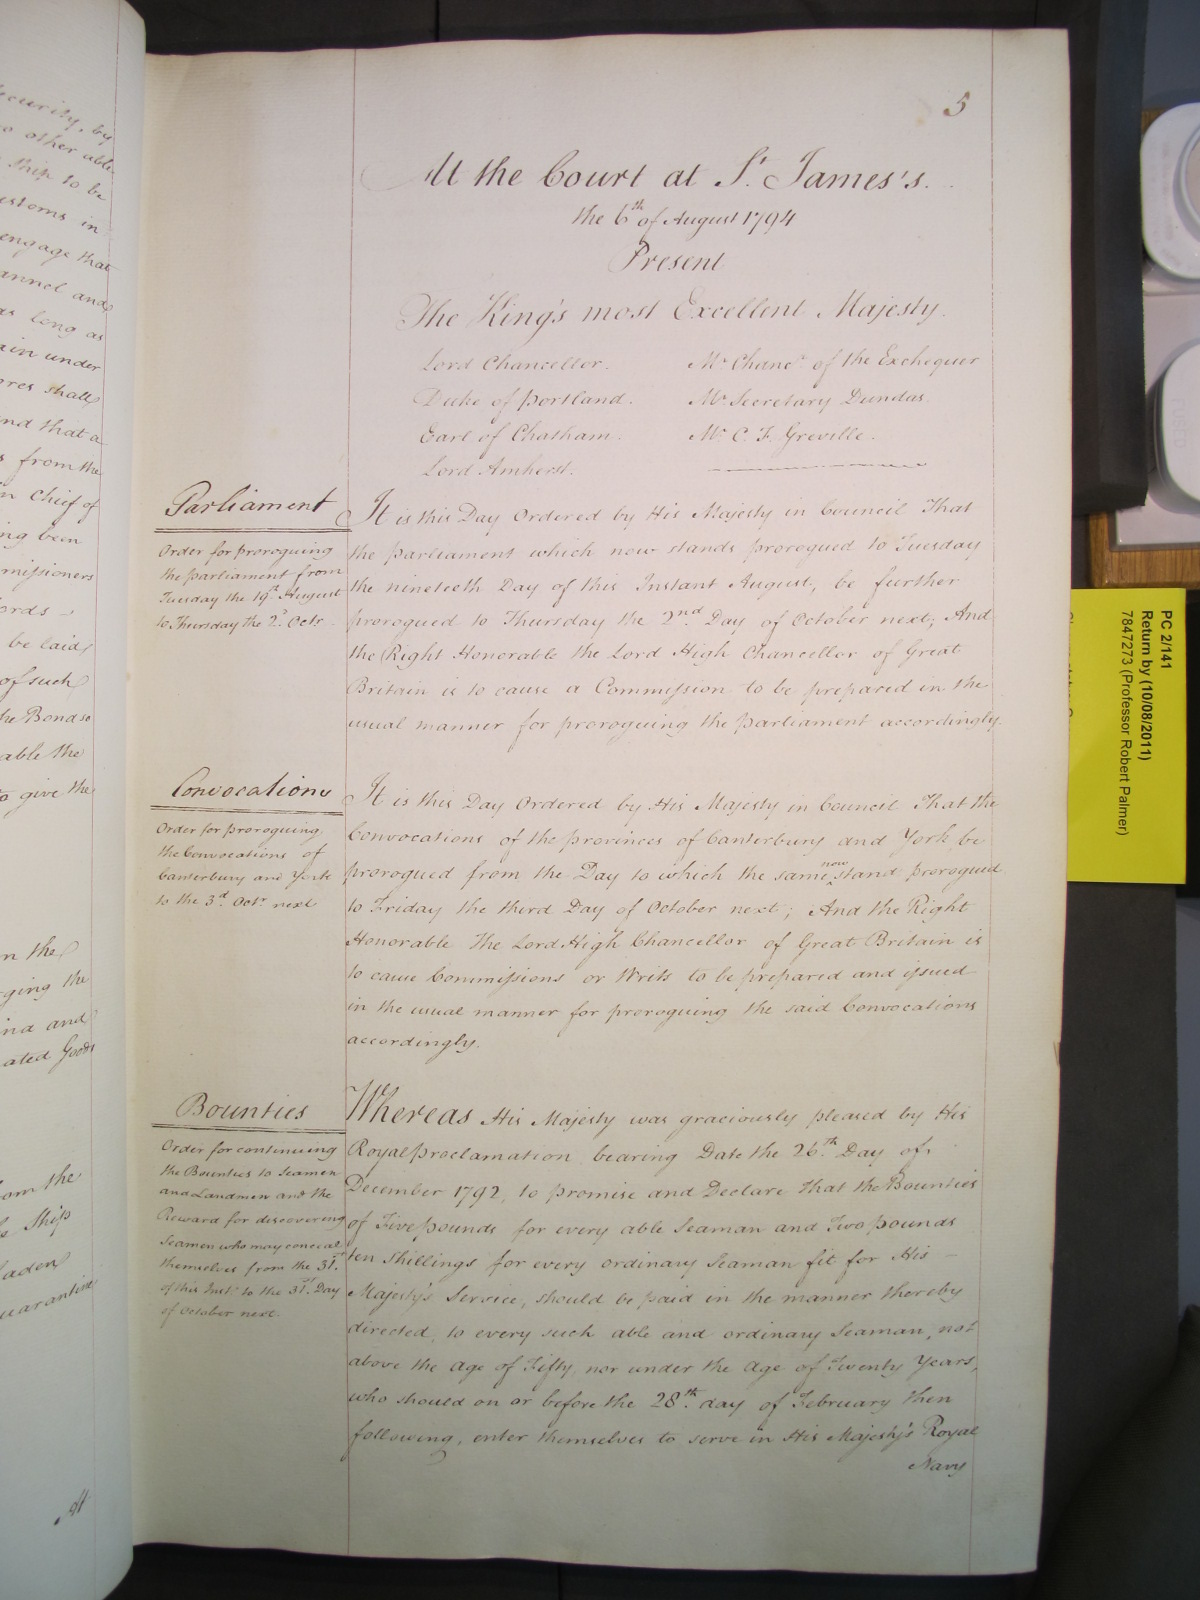 ecurity, by
o other able
Ship to be
ustoms in
engage that
annel and
as long as
ain under
ores shall
nd that a
s from the
n Chief of
ng been
missioners
ords
be laid
of such
he Bonds
able the
to give the
n the
ging the
ind and
ated Goods
om the
Ship
aden
uarantine
At
5
At the Court at St. James's.
the 6th of August 1794
Present
The King's most Excellent Majesty.
Lord Chancellor. Mr. Chancr. of the Exchequer
Duke of Portland. Mr. Secretary Dundas.
Earl of Chatham. Mr. C. F. Greville.
Lord Amherst.
Parliament
Order for proroguing
the Parliament from
Tuesday the 19th. August
to Thursday the 2d. Octr.
It is this Day Ordered by His Majesty in Council That
the Parliament which now stands prorogued to Tuesday
the nineteeth Day of this Instant August, be further
prorogued to Thursday the 2nd. Day of October next; And
the Right Honorable the Lord High Chancellor of Great
Britain is to cause a Commission to be prepared in the
usual manner for proroguing the Parliament accordingly.
Convocations
Order for proroguing
the Convocations of
Canterbury and York
to the 3d. Octr. next
It is this Day Ordered by His Majesty in Council That the
Convocations of the Provinces of Canterbury and York be
prorogued from the Day to which the same now stand prorogued
to Friday the third Day of October next; And the Right
Honorable The Lord High Chancellor of Great Britain is
to cause Commissions or Writs to be prepared and issued
in the usual manner for proroguing the said Convocations
accordingly.
Bounties
Order for continuing
the Bounties to Seamen
and Landmen and the
Reward for discovering
Seamen who may conceal
themselves from the 31st.
of this Inst. to the 31st. Day
of October next.
Whereas His Majesty was graciously pleased by His
Royal Proclamation bearing Date the 26th. Day of
December 1792, to promise and Declare that the Bounties
of Five Pounds for every able Seaman and Two Pounds
ten Shillings for every ordinary Seaman fit for His
Majesty's Service, should be paid in the manner thereby
directed, to every such able and ordinary Seaman, not
above the Age of Fifty, nor under the Age of Twenty Years,
who should on or before the 28th. day of February then
following, enter themselves to serve in His Majesty's Royal
Navy
PC 2/141
Return by (10/08/2011)
7847273 (Professor Robert Palmer)